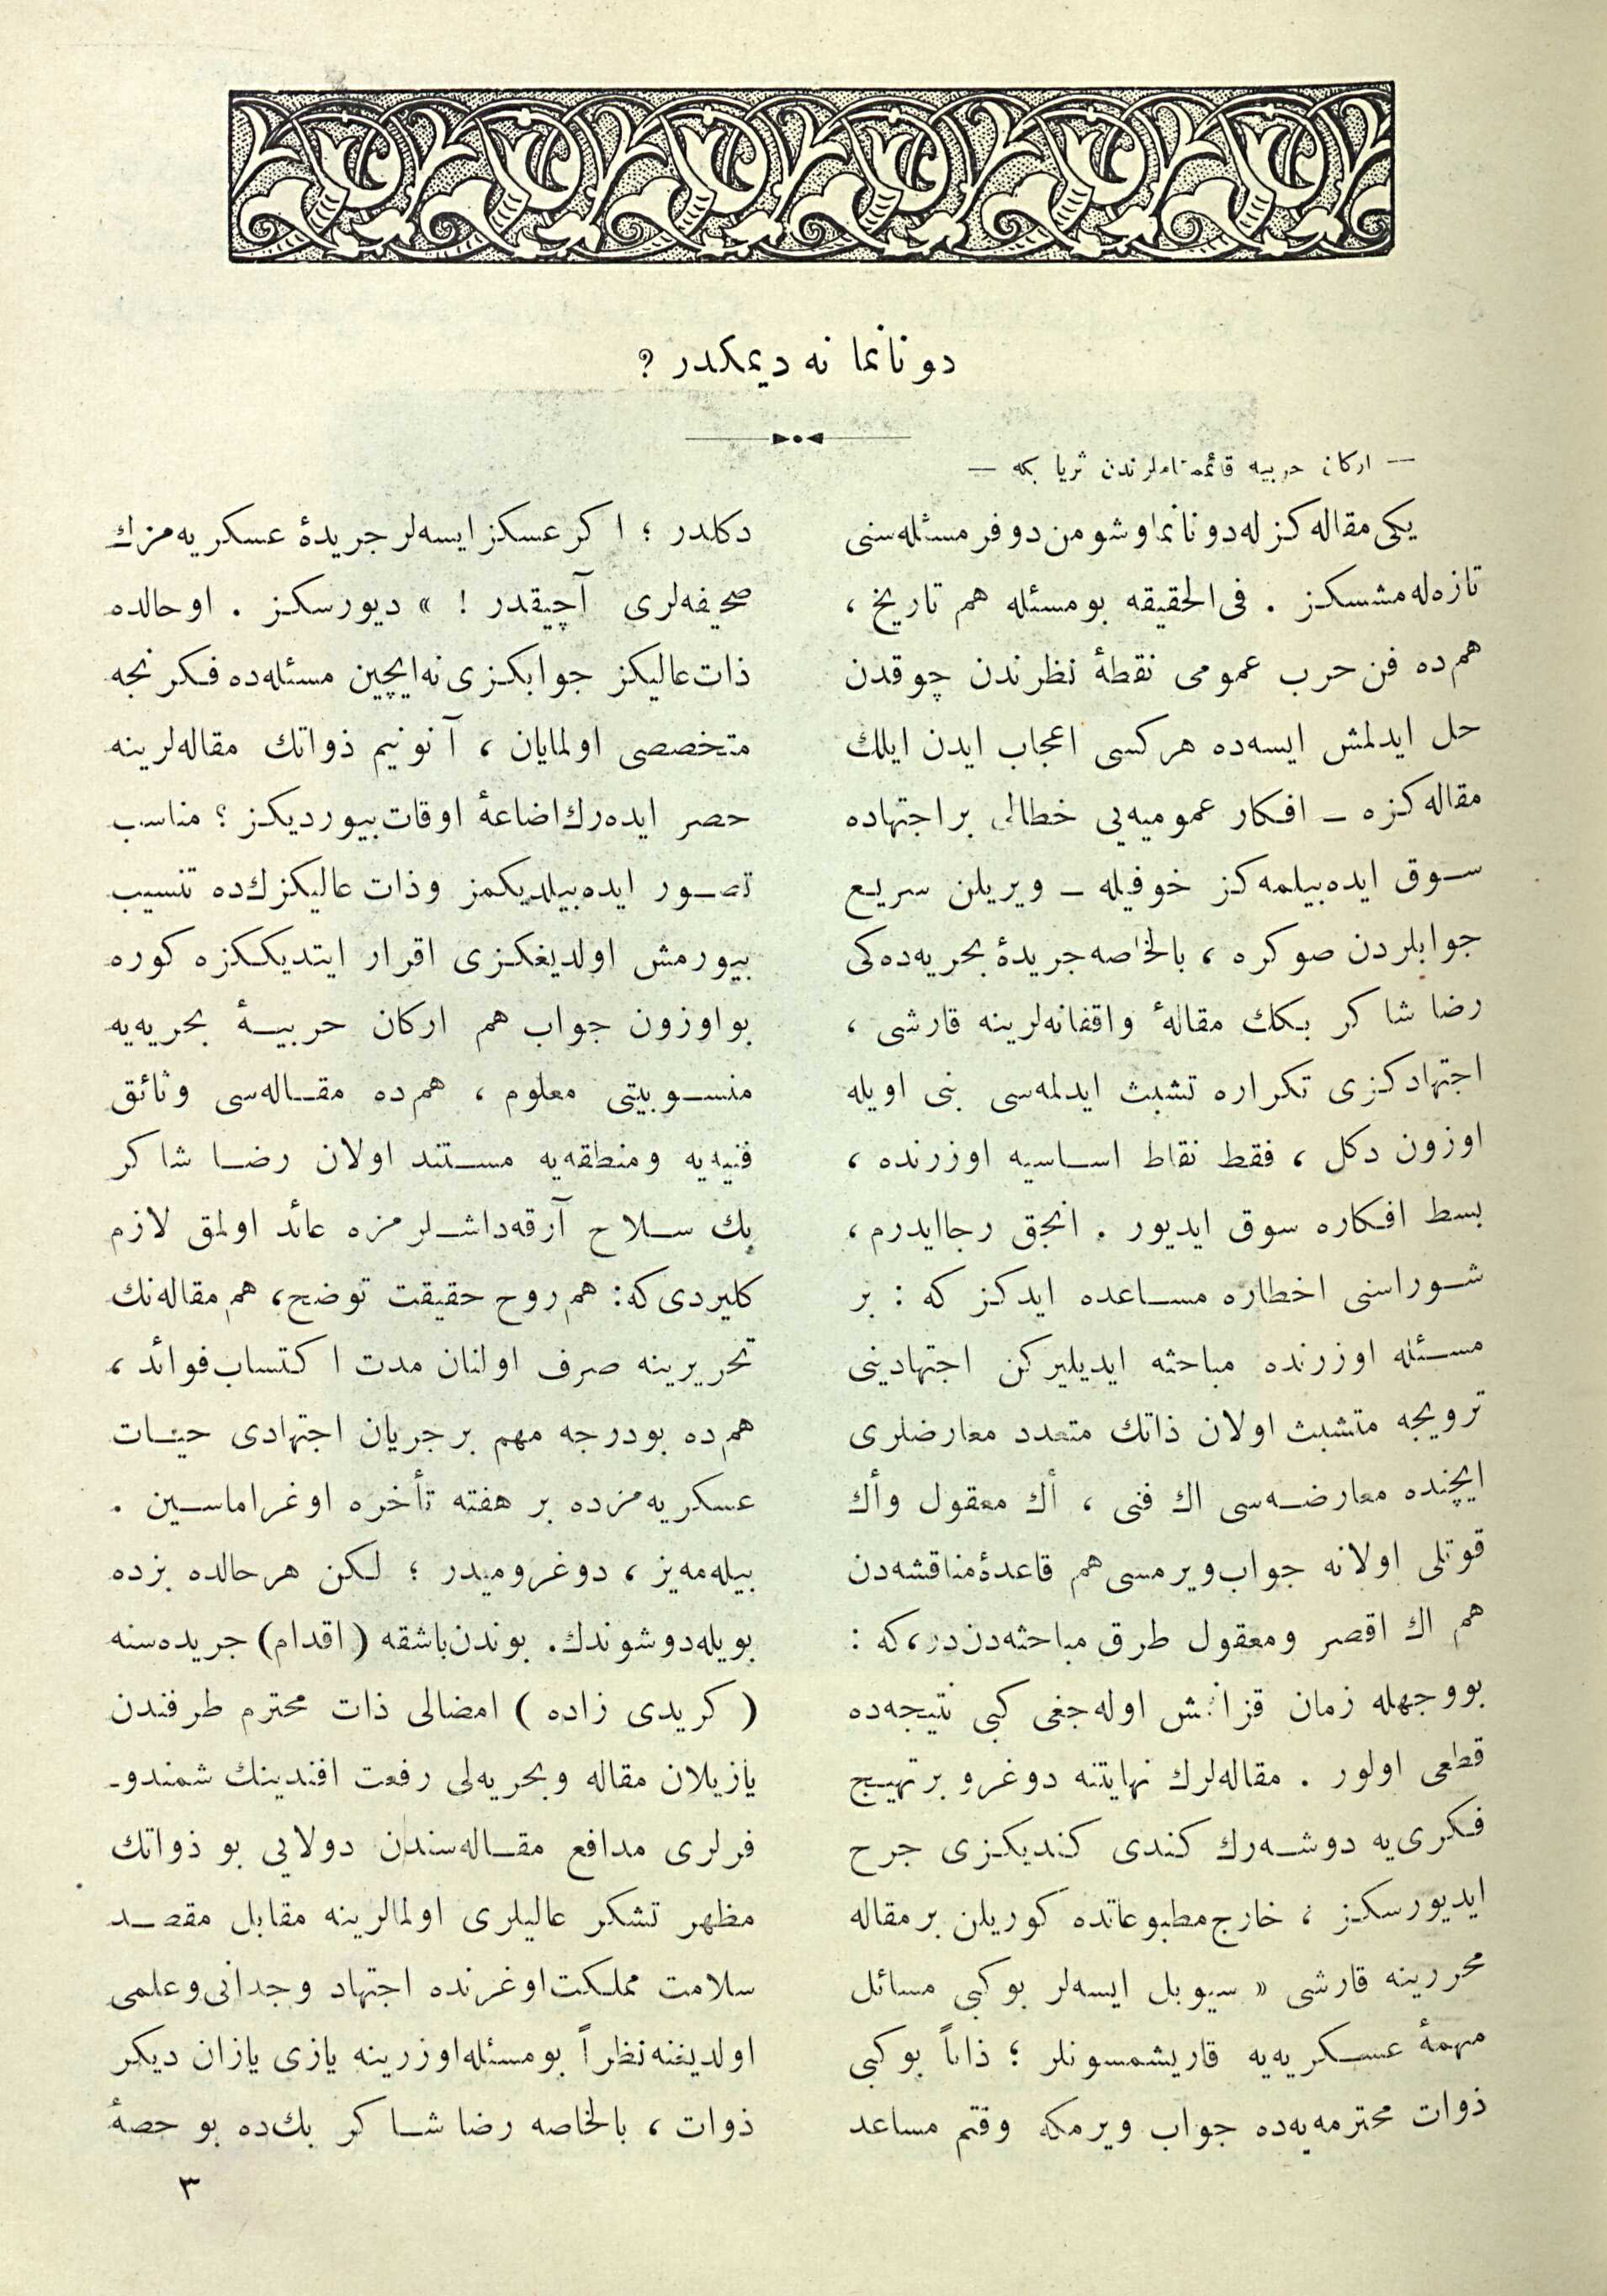 دونانما نه دیمکدر ?
— ارکان حربیه قائممقاملرندن ثریا بکه —
یکی مقاله‌کزله دونانما وشومن دوفر مسئله‌سنی
تازه‌له‌مشسکز . فی‌الحقیقه بومسئله هم تاریخ ،
هم‌ده فن حرب عمومی نقطۀ نظرندن چوقدن
حل ایدلمش ایسه‌ده هرکسی اعجاب ایدن ایلك
مقاله‌کزه ـ افکار عمومیه‌یی خطالی براجتهاده
سوق ایده‌بیلمه‌کز خوفیله ـ ویریلن سریع
جوابلردن صوکره ، بالخاصه جریدۀ بحریه‌ده‌کی
رضا شاکر بکك مقالۀ واقفانه‌لرینه قارشی ،
اجتهادکزی تکراره تشبث ایدلمه‌سی بنی اویله
اوزون دکل ، فقط نقاط اساسیه اوزرنده ،
بسط افکاره سوق ایدیور . انجق رجاایدرم ،
شوراسنی اخطاره مساعده ایدکز که : بر
مسئله اوزرنده مباحثه ایدیلیرکن اجتهادینی
ترویجه متشبث اولان ذاتك متعدد معارضلری
ایچنده معارضه‌سی اك فنی ، أك معقول وأك
قوتلی اولانه جواب‌ویرمسی هم قاعدۀمناقشه‌دن
هم اك اقصر ومعقول طرق مباحثه‌دن‌در، که :
بووجهله زمان قزانمش اوله‌جغی کبی نتیجه‌ده
قطعی اولور . مقاله‌لرك نهایتنه دوغرو برتهییج
فکری‌یه دوشه‌رك کندی کندیکزی جرح
ایدیورسکز ، خارج‌مطبوعاتده کوریلن برمقاله
محررینه قارشی « سیویل ایسه‌لر بوکبی مسائل
مهمۀ عسکریه‌یه قاریشمسونلر ؛ ذاتاً بوکبی
ذوات محترمه‌یه‌ده جواب ویرمکه وقتم مساعد
دکلدر ؛ اکرعسکرایسه‌لر جریدۀ عسکریه‌مزك
صحیفه‌لری آچیقدر ! » دیورسکز . اوحالده
ذات‌عالیکز جوابکزی نه‌ایچین مسئله‌ده فکرنجه
متخصصی اولمایان ، آنونیم ذواتك مقاله‌لرینه
حصر ایده‌رك‌اضاعۀ اوقات‌بیوردیکز ؟ مناسب
تصور ایده‌بیلدیکمز وذات عالیکزك‌ده تنسیب
بیورمش اولدیغکزی اقرار ایتدیککزه کوره
بواوزون جواب هم ارکان حربیۀ بحریه‌یه
منسوبیتی معلوم ، هم‌ده مقاله‌سی وثائق
فنیه‌یه ومنطقه‌یه مستند اولان رضا شاکر
بك سلاح آرقه‌داشلرمزه عائد اولمق لازم
کلیردی‌که: هم روح حقیقت توضح، هم مقاله‌نك
تحریرینه صرف اولنان مدت اکتساب‌فوائد ،
هم‌ده بودرجه مهم برجریان اجتهادی حیات
عسکریه‌مزده بر هفته تأخره اوغراماسین .
بیله‌مه‌یز ، دوغرومیدر ؛ لکن هرحالده بزده
بویله‌دوشوندك. بوندن‌باشقه (اقدام) جریده‌سنه
( کریدی زاده ) امضالی ذات محترم طرفندن
یازیلان مقاله وبحریه‌لی رفعت افندینك شمندو-
فرلری مدافع مقاله‌سندن دولایی بو ذواتك
مظهر تشکر عالیلری اولمالرینه مقابل مقصد
سلامت مملکت‌اوغرنده اجتهاد وجدانی‌وعلمی
اولدیغنه‌نظراً بومسئله‌اوزرینه یازی یازان دیکر
ذوات ، بالخاصه رضا شاکر بك‌ده بو حصۀ
٣